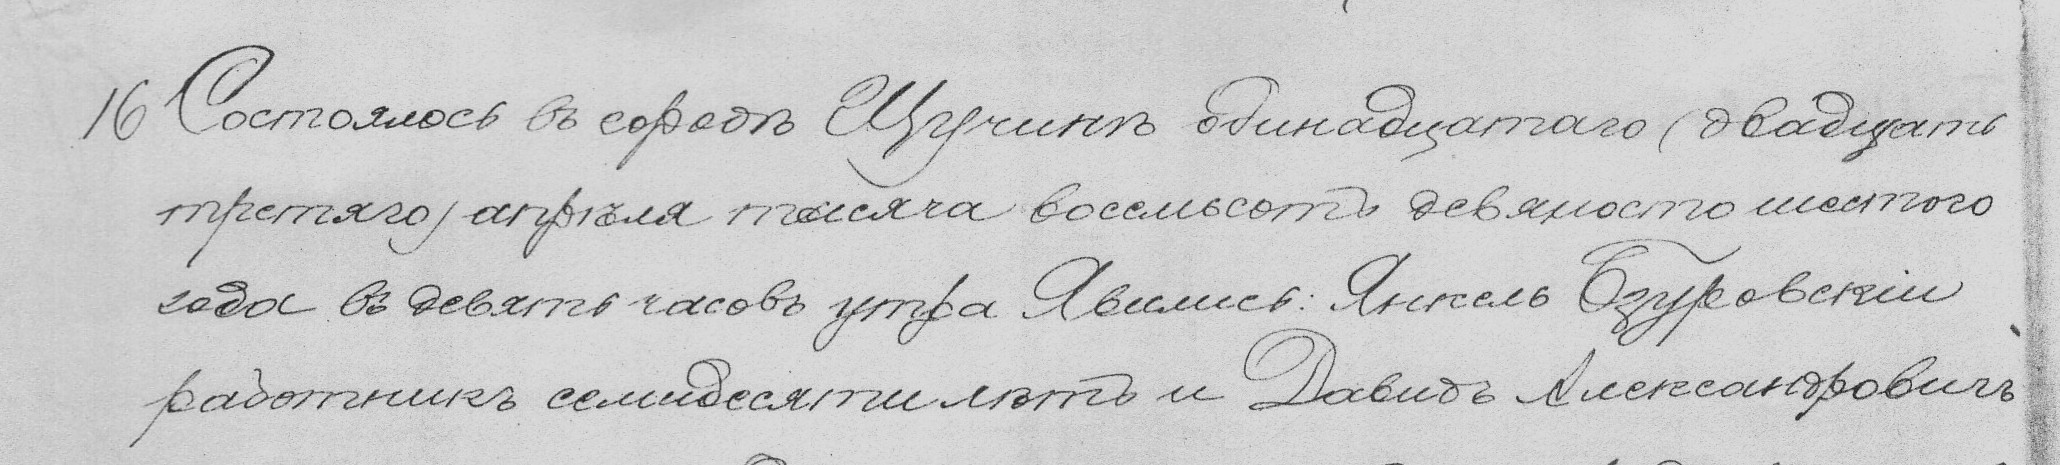 16 Состоялось въ городѣ Щучинѣ одинадцатаго (двадцать
третяго) апрѣля тысяча восемьсотъ девяносто шестого
года въ девять часовъ утра Явились: Янкель Бзуровскій
работникъ семидесяти лѣтъ и Давидъ Александровичъ